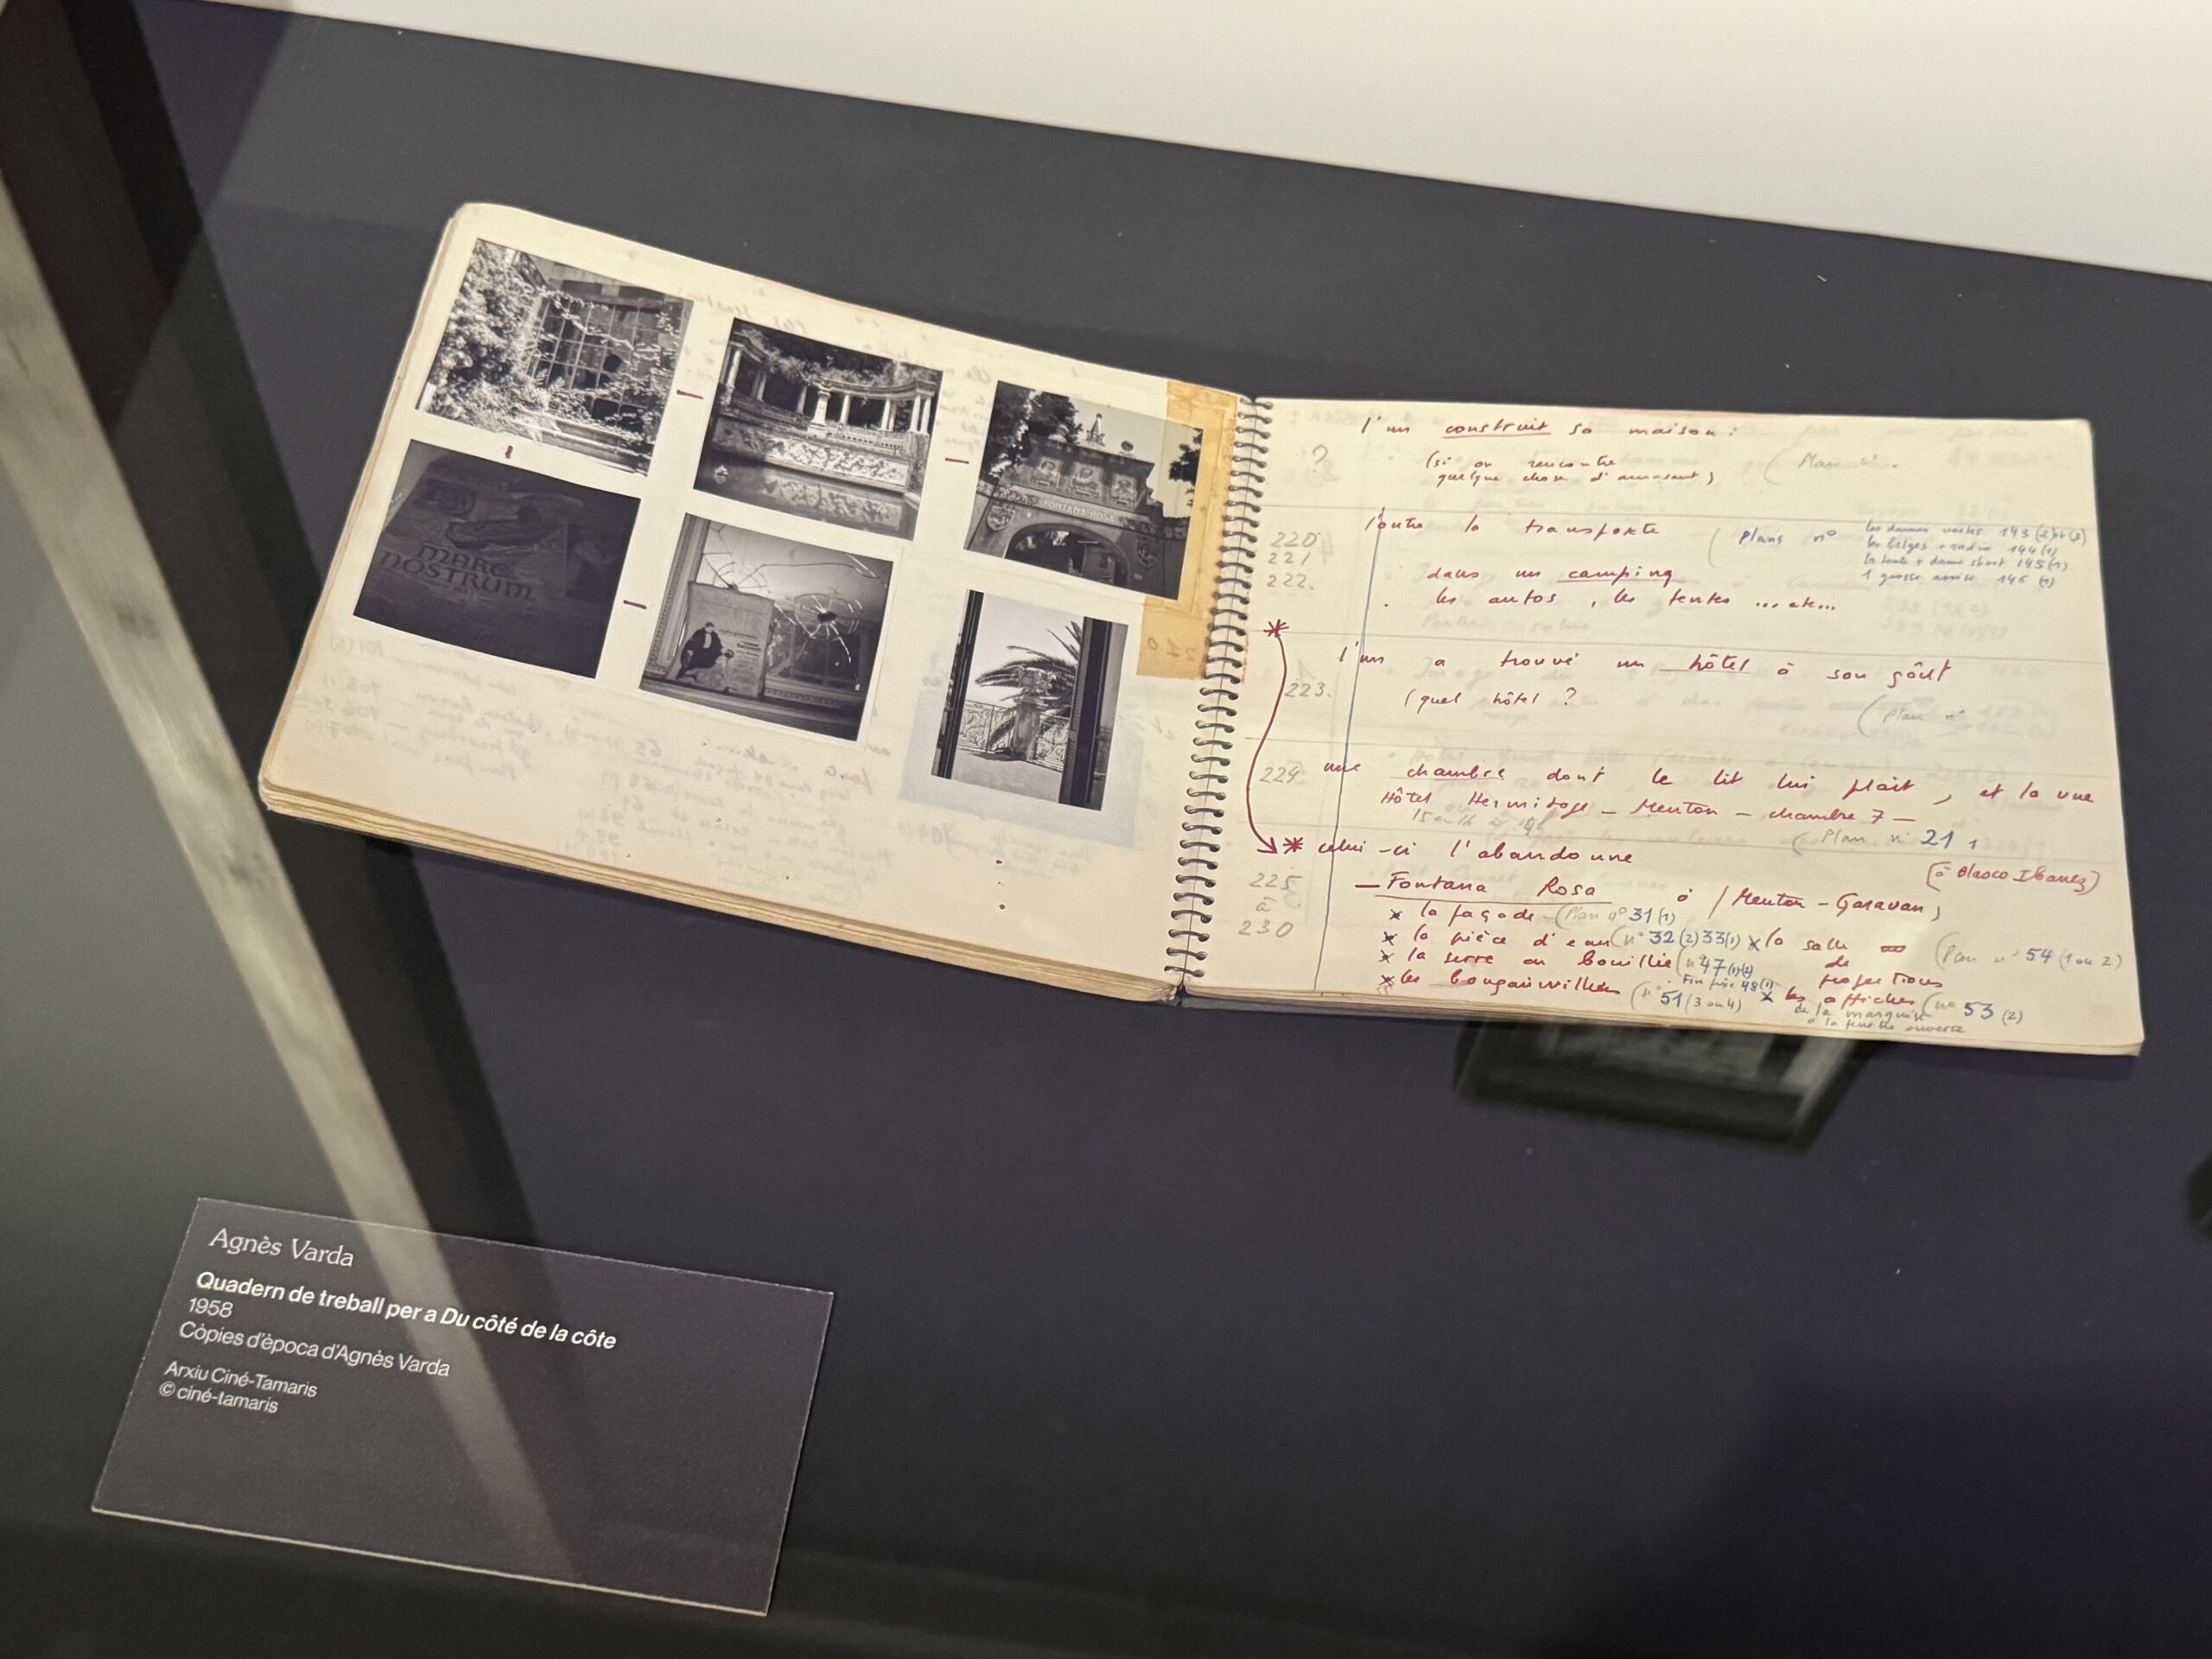 MARE
NOSTRUM
FONTANA ROSA
l'un construit sa maison :
?
(si on rencontre
quelque chose d'amusant)
(Plan n°
220
221
222.
l'autre la transporte
(plans n°
143 (2)et(3)
les belges + radio 144(1)
la tente + dame short 145(1)
1 grosse assise 146 (1)
dans un camping
les autos, les tentes ... etc...
*
l'un a trouvé un hôtel à son goût
223.
(quel hôtel ?
(plan n°
224
une chambre dont le lit lui plait, et la vue
Hôtel Hermitage - Menton - chambre 7 -
15 ou 16 à 9h
(Plan n° 21 1
* celui-ci l'abandonne
225
à
230
(à Blasco Ibanez)
- Fontana Rosa à (Menton-Garavan)
x la façade (Plan n° 31(1)
x la pièce d'eau (n° 32(2) 33(1) x la salle de projections (Plan n° 54 (1 ou 2)
x la serre en bouillie (n° 47(1)(2)
Fin fixe 48(1)
x les bougainvillées (n° 51 (3 ou 4) x les affiches (n° 53 (2)
de la marquise
à la fenêtre ouverte
Agnès Varda
Quadern de treball per a Du côté de la côte
1958
Còpies d'època d'Agnès Varda
Arxiu Ciné-Tamaris
© ciné-tamaris